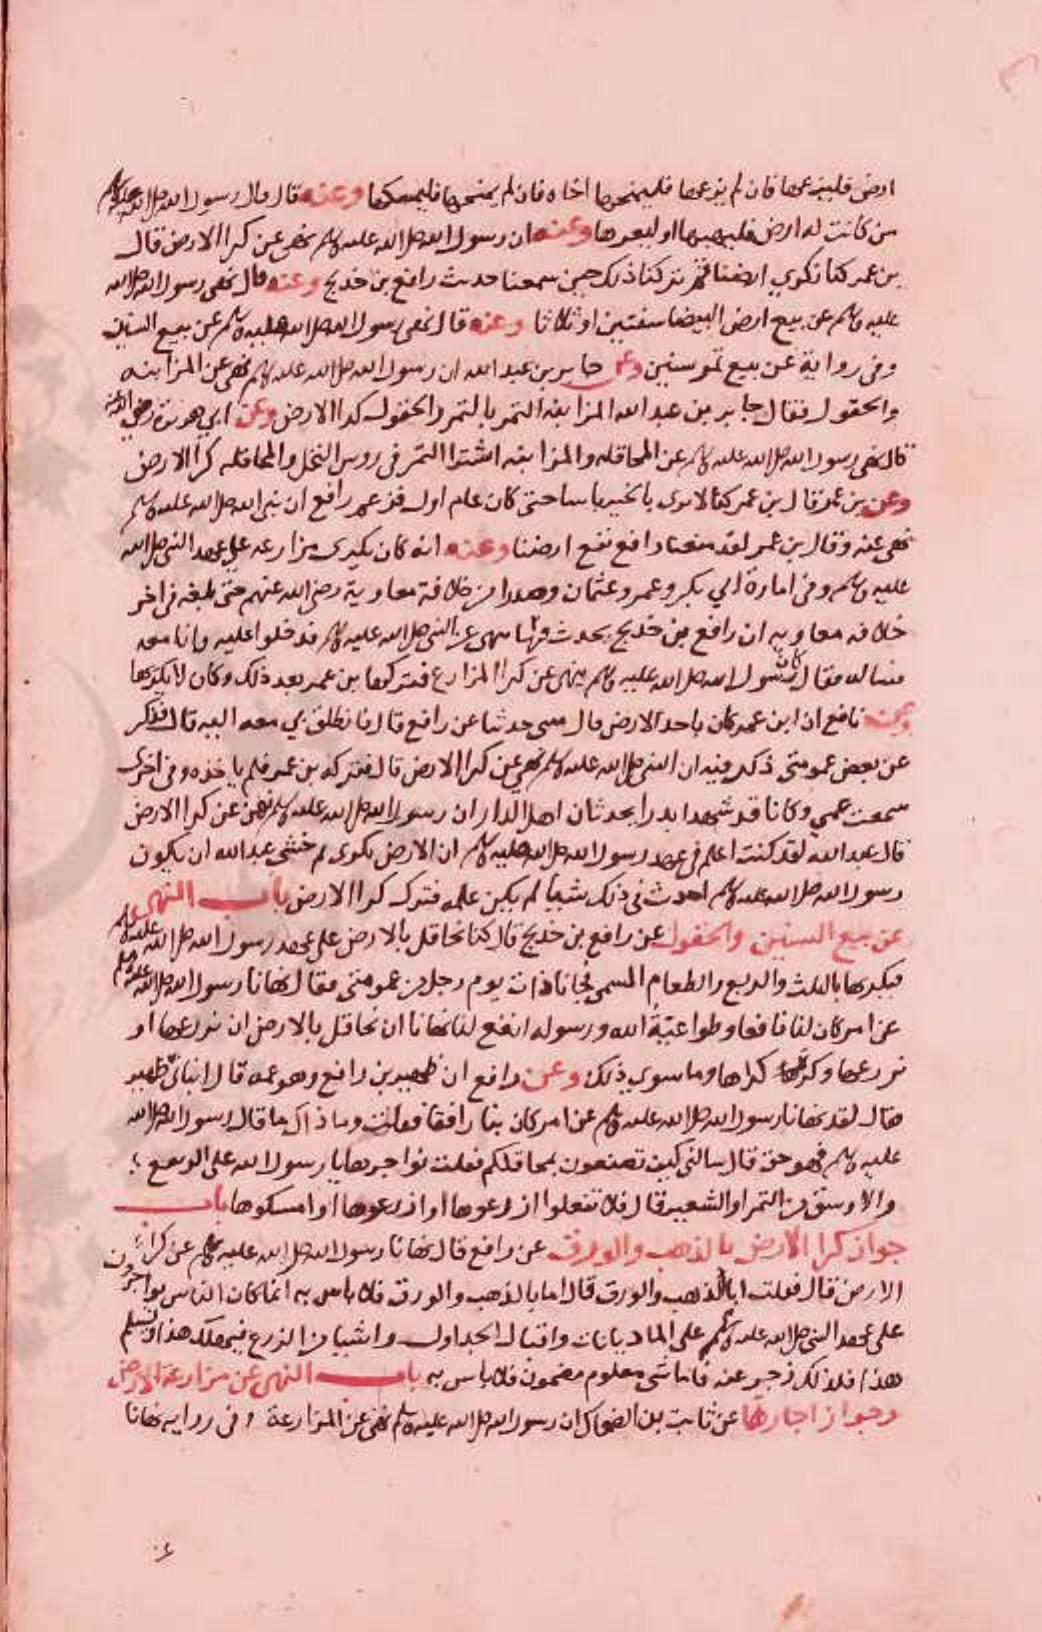 ارض فليزرعها فان لم يزرعها فليمنحها اخاه فان لم يمنحها فليمسكها وعنه قال قال رسول الله صلى الله عليه وسلم
من كانت له ارض فليهبها او ليعرها وعنه ان رسول الله صلى الله عليه وسلم نهى عن كرا الارض قال
بن عمر كنا نكري ارضنا ثم تركنا ذلك حين سمعنا حديث رافع بن خديج وعنه قال نهى رسول الله صلى الله
عليه وسلم عن بيع ارض البيضا سنتين او ثلاثا وعنه قال نهى رسول الله صلى الله عليه وسلم عن بيع السنين
وفى رواية عن بيع ثمر سنين وعن جابر بن عبد الله ان رسول الله صلى الله عليه وسلم نهى عن المزابنه
والحقول فقال جابر بن عبد الله المزابنه التمر بالتمر والحقول كرا الارض وعن ابي هريرة رضي الله
قال نهى رسول الله صلى الله عليه وسلم عن المحاقله والمزابنه اشترا التمر فى روس النخل والمحاقله كرا الارض
وعن بن عمر قال بن عمر كنا لا نرى بالخبر باسا حتى كان عام اول فزعم رافع ان نبى الله صلى الله عليه وسلم
نهى عنه وقال بن عمر لقد منعنا رافع نفع ارضنا وعنه انه كان يكرى مزارعه على عهد النبى صلى الله
عليه وسلم وفى امارة ابي بكر وعمر وعثمان وصدرا من خلافة معاوية رضى الله عنهم حتى بلغه فى اخر
خلافه معاويه ان رافع بن خديج يحدث فيها بنهى عن النبى صلى الله عليه وسلم فدخلوا عليه وانا معه
فساله فقال كان رسول الله صلى الله عليه وسلم ينهى عن كرا المزارع فتركها بن عمر بعد ذلك وكان لا يكريها
وعن نافع ان ابن عمر كان ياجر الارض قال فنبى حديثا عن رافع قال فانطلق بي معه اليه قال فذكر
عن بعض عمومتى ذكر فيه ان النبى صلى الله عليه وسلم نهى عن كرا الارض قال فتركه بن عمر فلم ياخذه وفى اخرى
سمعت عمي وكانا قد شهدا بدرا يحدثان اهل الدار ان رسول الله صلى الله عليه وسلم نهى عن كرا الارض
قال عبد الله لقد كنت اعلم فى عهد رسول الله صلى الله عليه وسلم ان الارض تكرى ثم خشى عبد الله ان يكون
رسول الله صلى الله عليه وسلم احدث فى ذلك شيا لم يكن علمه فترك كرا الارض باب النهى
عن بيع السنين والحقول عن رافع بن خديج قال كنا نحاقل بالارض على عهد رسول الله صلى الله عليه وسلم
فنكريها بالثلث والربع والطعام المسمى فجانا ذات يوم رجل من عمومتى فقال نهانا رسول الله صلى الله عليه وسلم
عن امر كان لنا نافعا وطواعية الله ورسوله انفع لنا نهانا ان نحاقل بالارض ان نزرعها او
نزرعها وكره كراها وما سوي ذلك وعن رافع ان ظهير بن رافع وهو عمه قال اتانى ظهير
فقال لقد نهانا رسول الله صلى الله عليه وسلم عن امر كان بنا رافقا فقلت وما ذاك ما قال رسول الله صلى الله
عليه وسلم فهو حق قال سالنى كيف تصنعون بمحاقلكم فقلت نواجرها يا رسول الله على الربيع
والاوسق من التمر او الشعير قال فلا تفعلوا ازرعوها او ازرعوها او امسكوها باب
جواز كرا الارض بالذهب والورق عن رافع قال نهانا رسول الله صلى الله عليه وسلم عن كرا
الارض قال فقلت ابالذهب والورق قال اما بالذهب والورق فلا باس به انما كان الناس يواجرون
على عهد النبى صلى الله عليه وسلم على الماذيانات واقبال الجداول واشيا من الزرع فيهلك هذا ويسلم
هذا فلذلك زجر عنه فاما شى معلوم مضمون فلا باس به باب النهى عن مزارعة الارض
وجواز اجارتها عن ثابت بن الضحاك ان رسول الله صلى الله عليه وسلم نهى عن المزارعة وفى روايه نهانا